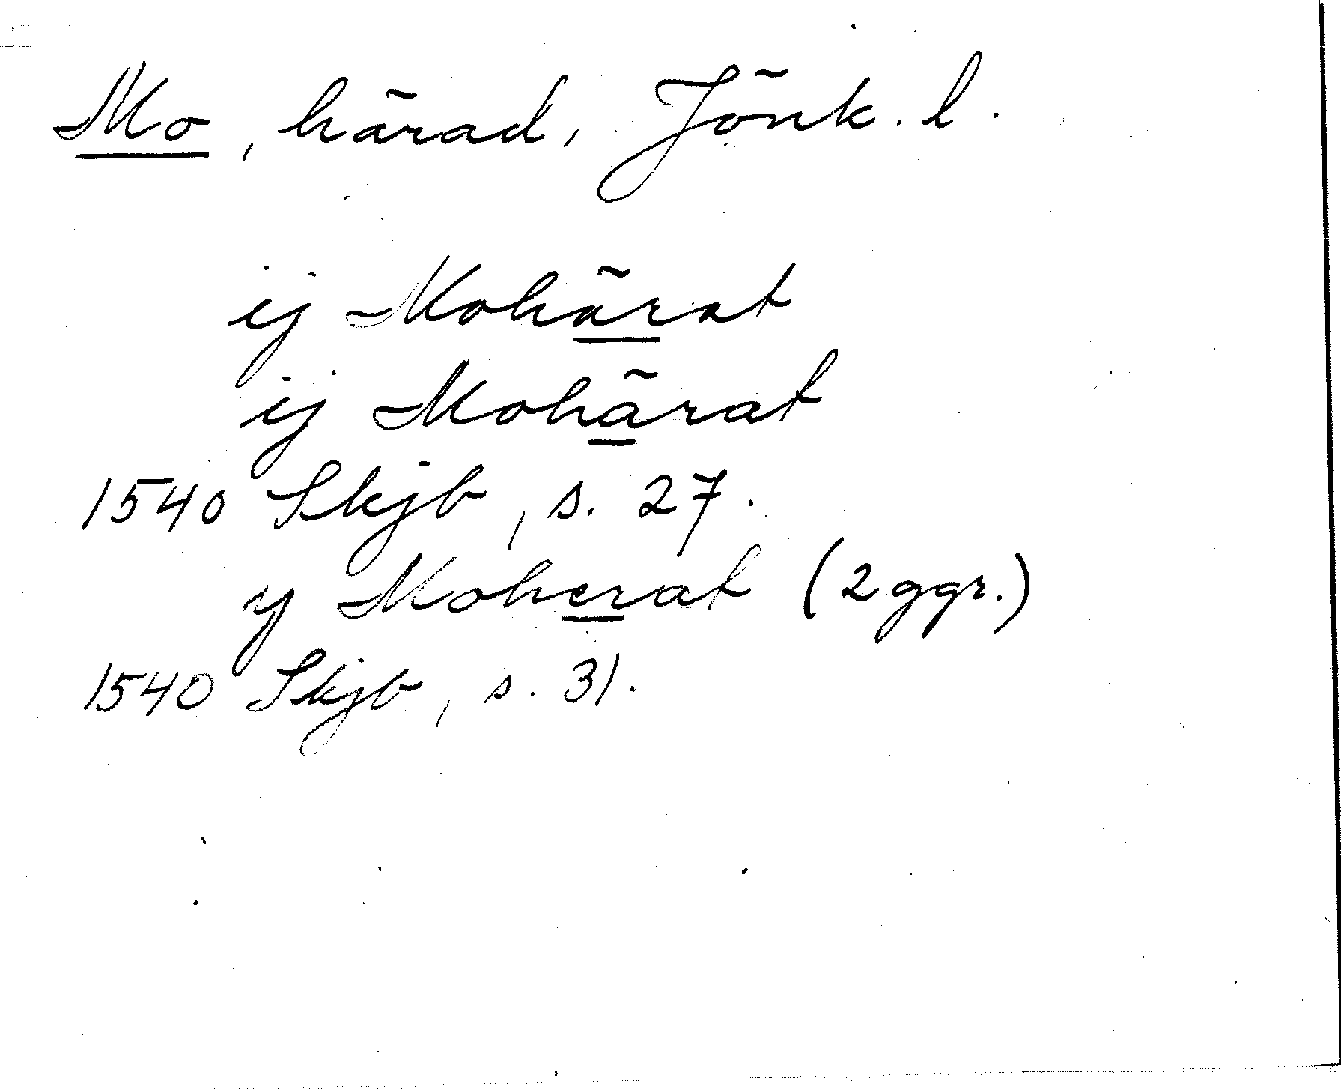 Mo, härad, Jönk. l.
ij Mohärat
ij Mohärat
1540 Skjb, s. 27.
y Moherat (2 ggr.)
1540 Skjb, s. 31.